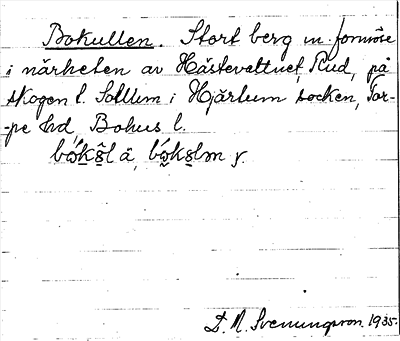 Bokullen. Stort berg m. fornröse
i närheten av Hästevattnet, Rud, på
skogen t. Sollum i Hjärtum socken, Tor-
-pe hd, Bohus l.
L. M. Svenungsson. 1935.